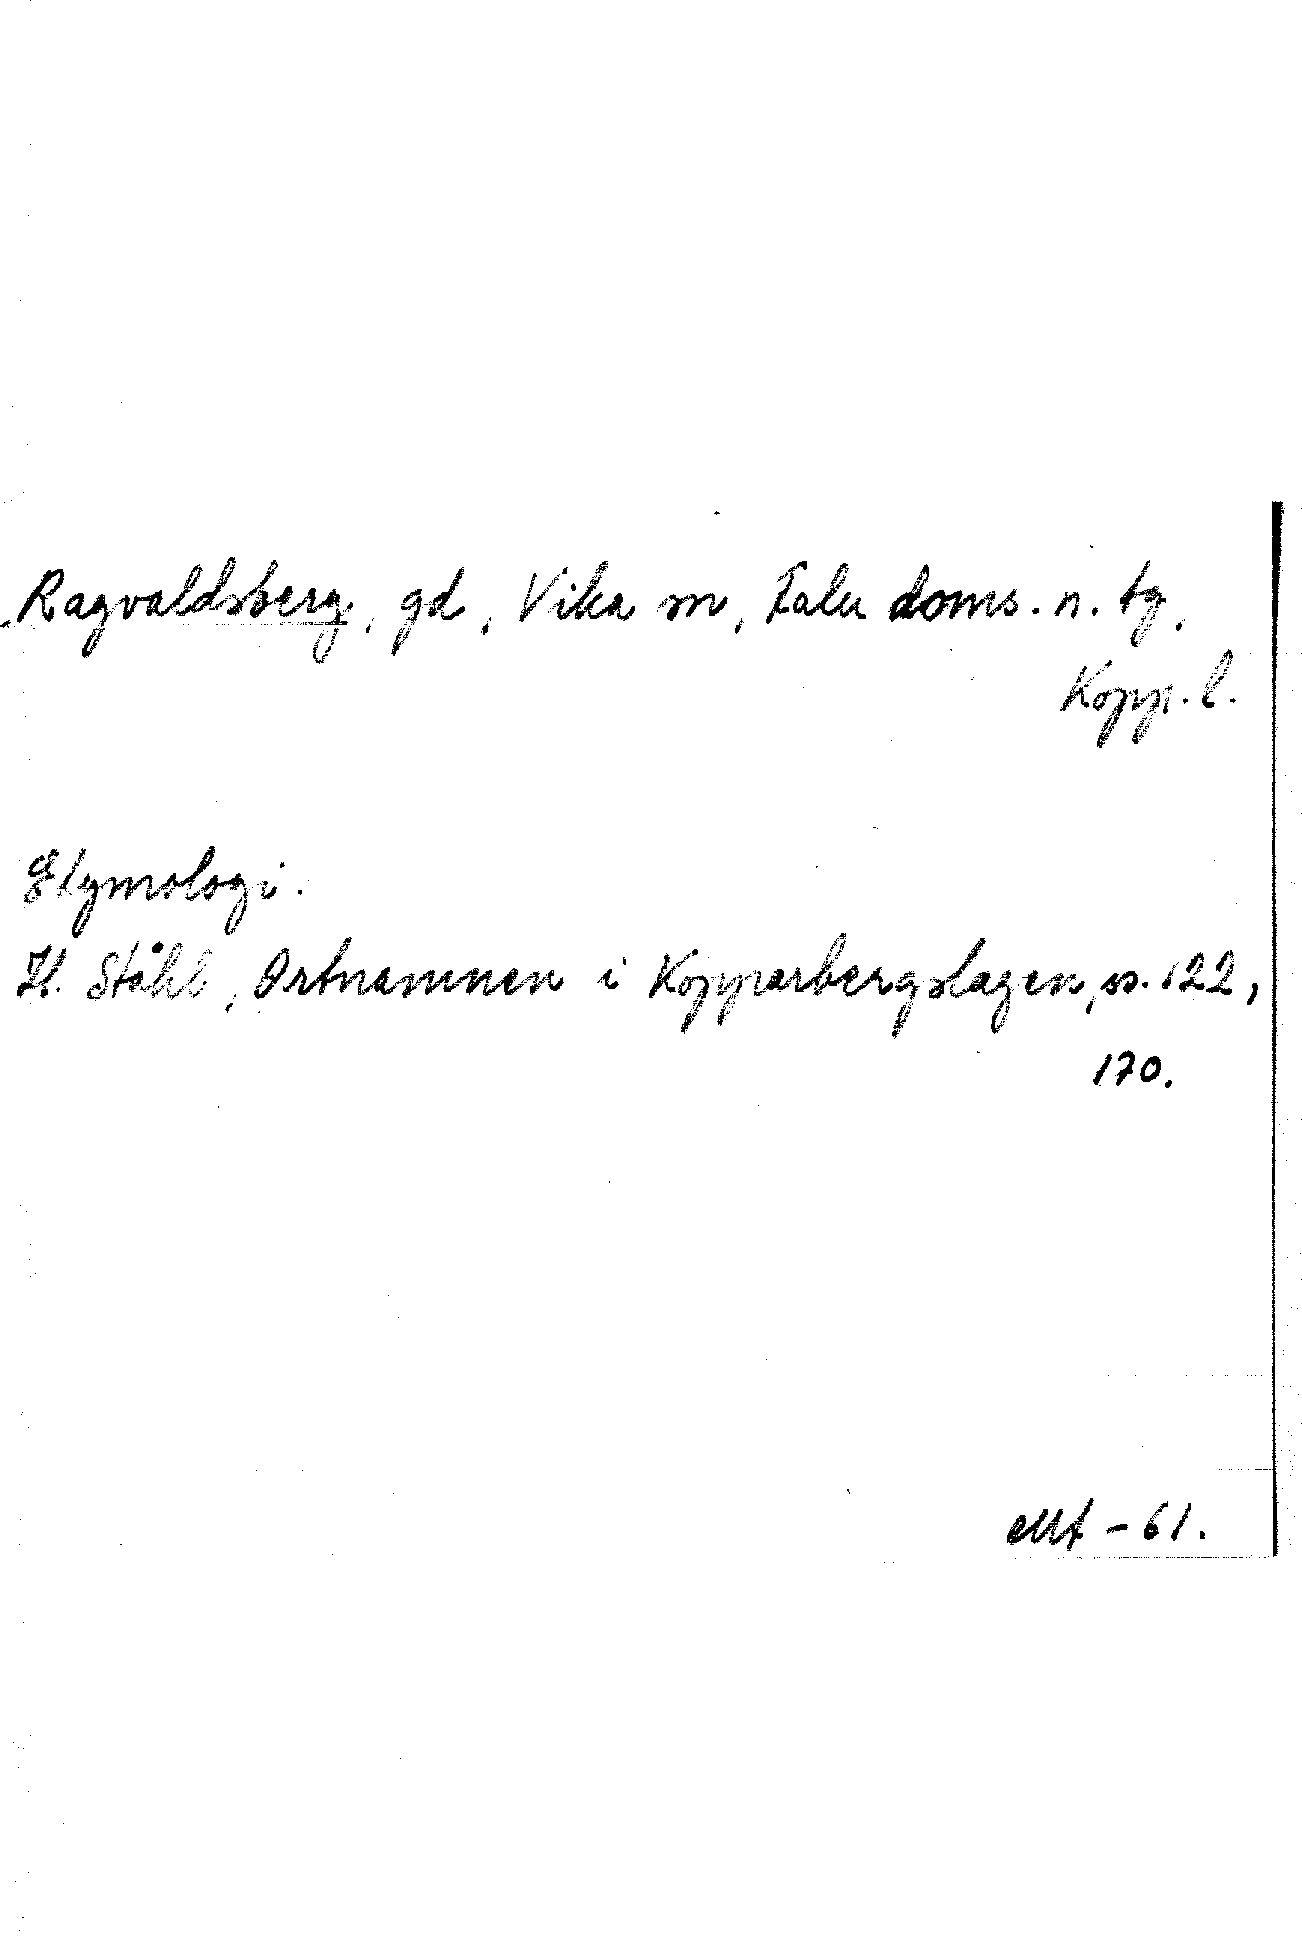 Ragvaldsberg, gd, Vika sn, Falu doms. n. tg,
Kopp. l.
Etymologi.
H. Ståhl, Ortnamnen i Kopparbergslagen, ss. 122,
170.
- 61.